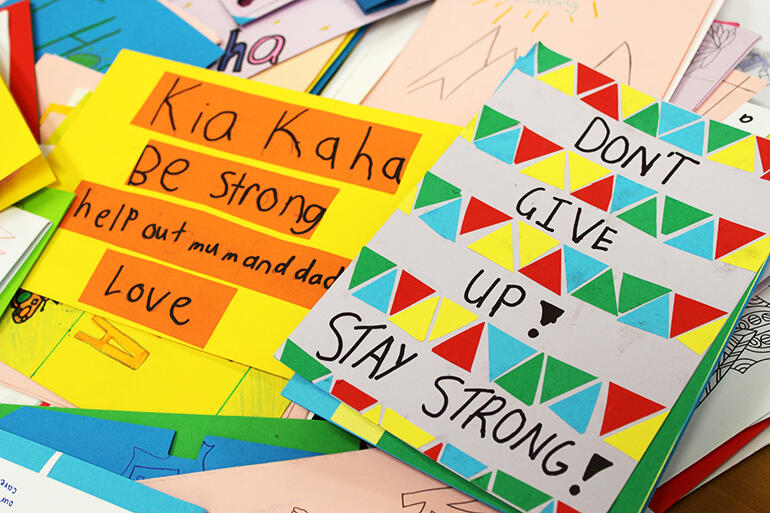 Kia Kaha
Be strong
help out mum and dad
Love
DON'T
GIVE
UP!
STAY STRONG!
ha
our
care